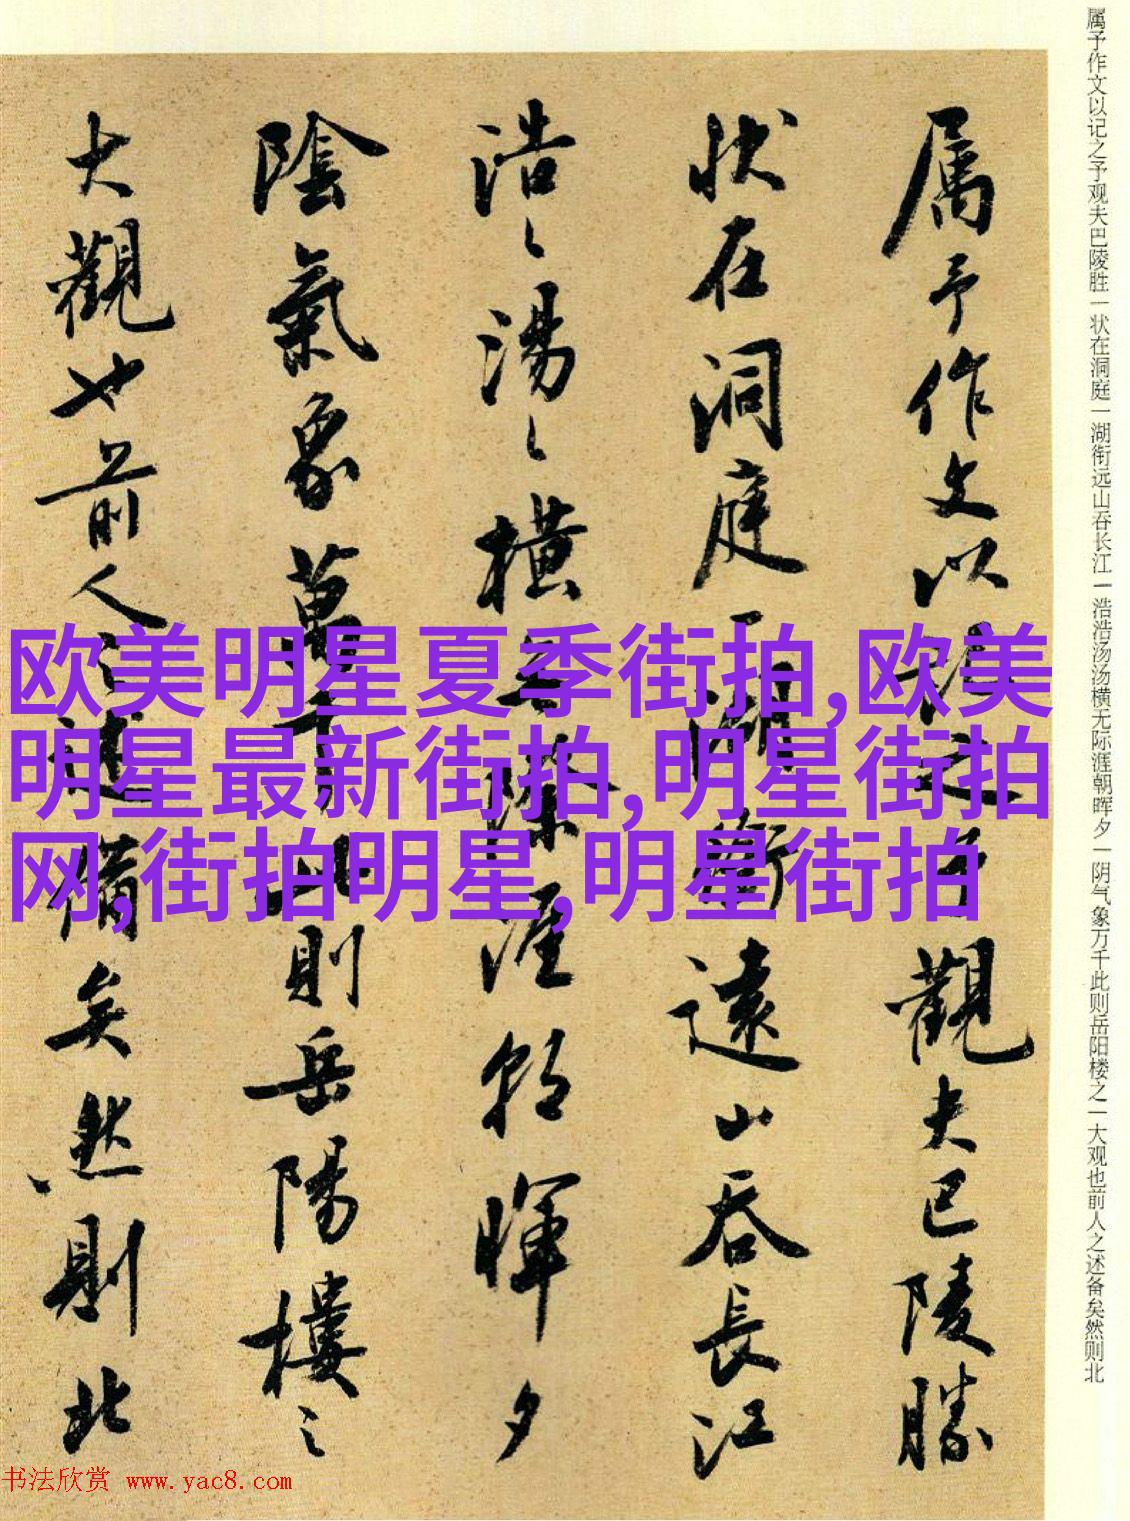 属予作文以记之予观夫巴陵胜一状在洞庭一湖衔远山吞长江一浩浩汤汤横无际涯朝晖夕一阴气象万千此则岳阳楼之一大观也前人之述备矣然则北
属予作文以記之予觀夫巴陵勝
状在洞庭一湖銜遠山吞長江
浩〻湯〻橫無際涯朝暉夕
陰氣象萬千此則岳陽樓之
大觀也前人之述備矣然則北
欧美明星夏季街拍,欧美
明星最新街拍,明星街拍
网,街拍明星,明星街拍
书法欣赏 www.yac8.com